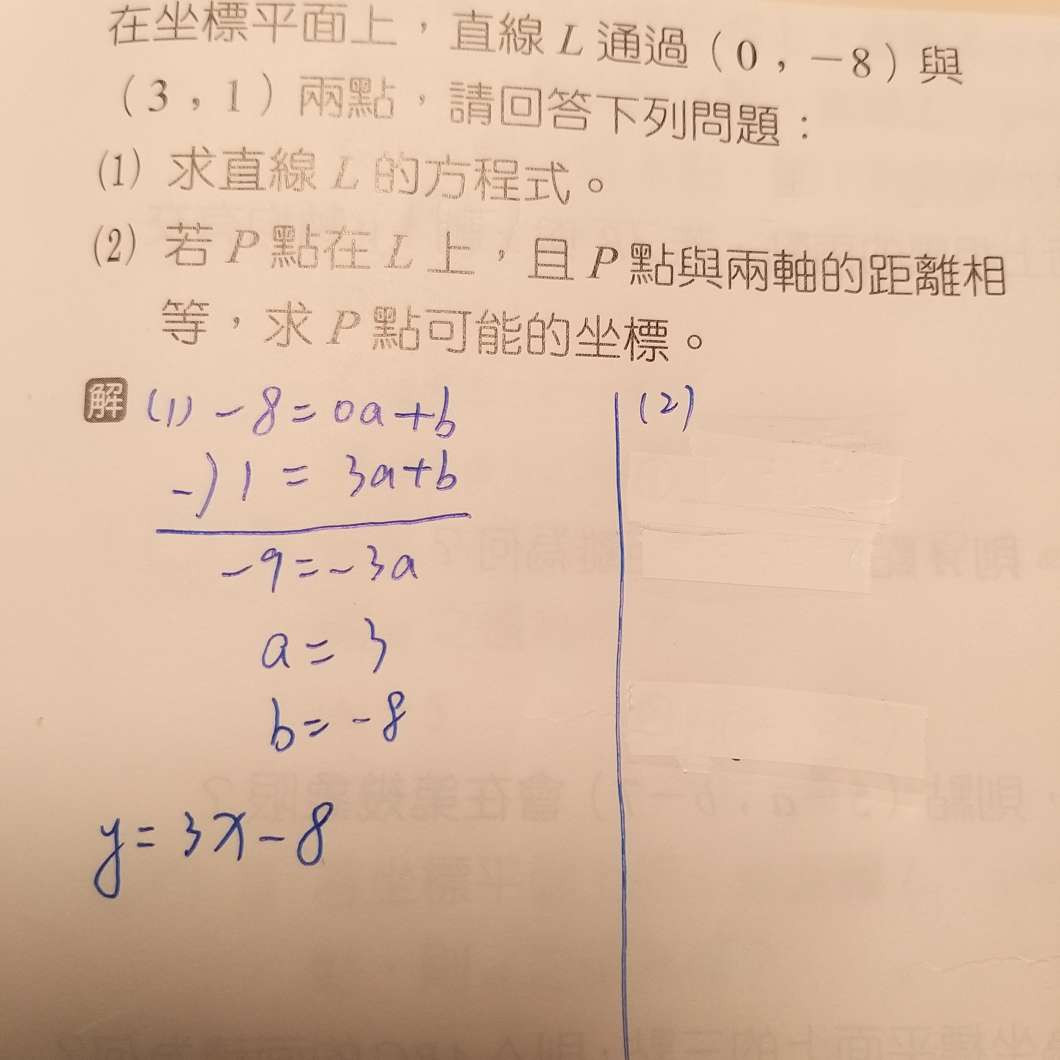 在坐標平面上，直線 L 通過（0，－8）與
（3，1）兩點，請回答下列問題：
(1) 求直線 L 的方程式。
(2) 若 P 點在 L 上，且 P 點與兩軸的距離相
等，求 P 點可能的坐標。
解 (1) -8=0a+b
-) 1 = 3a+b
-9=-3a
a= 3
b= -8
y= 3x-8
(2)